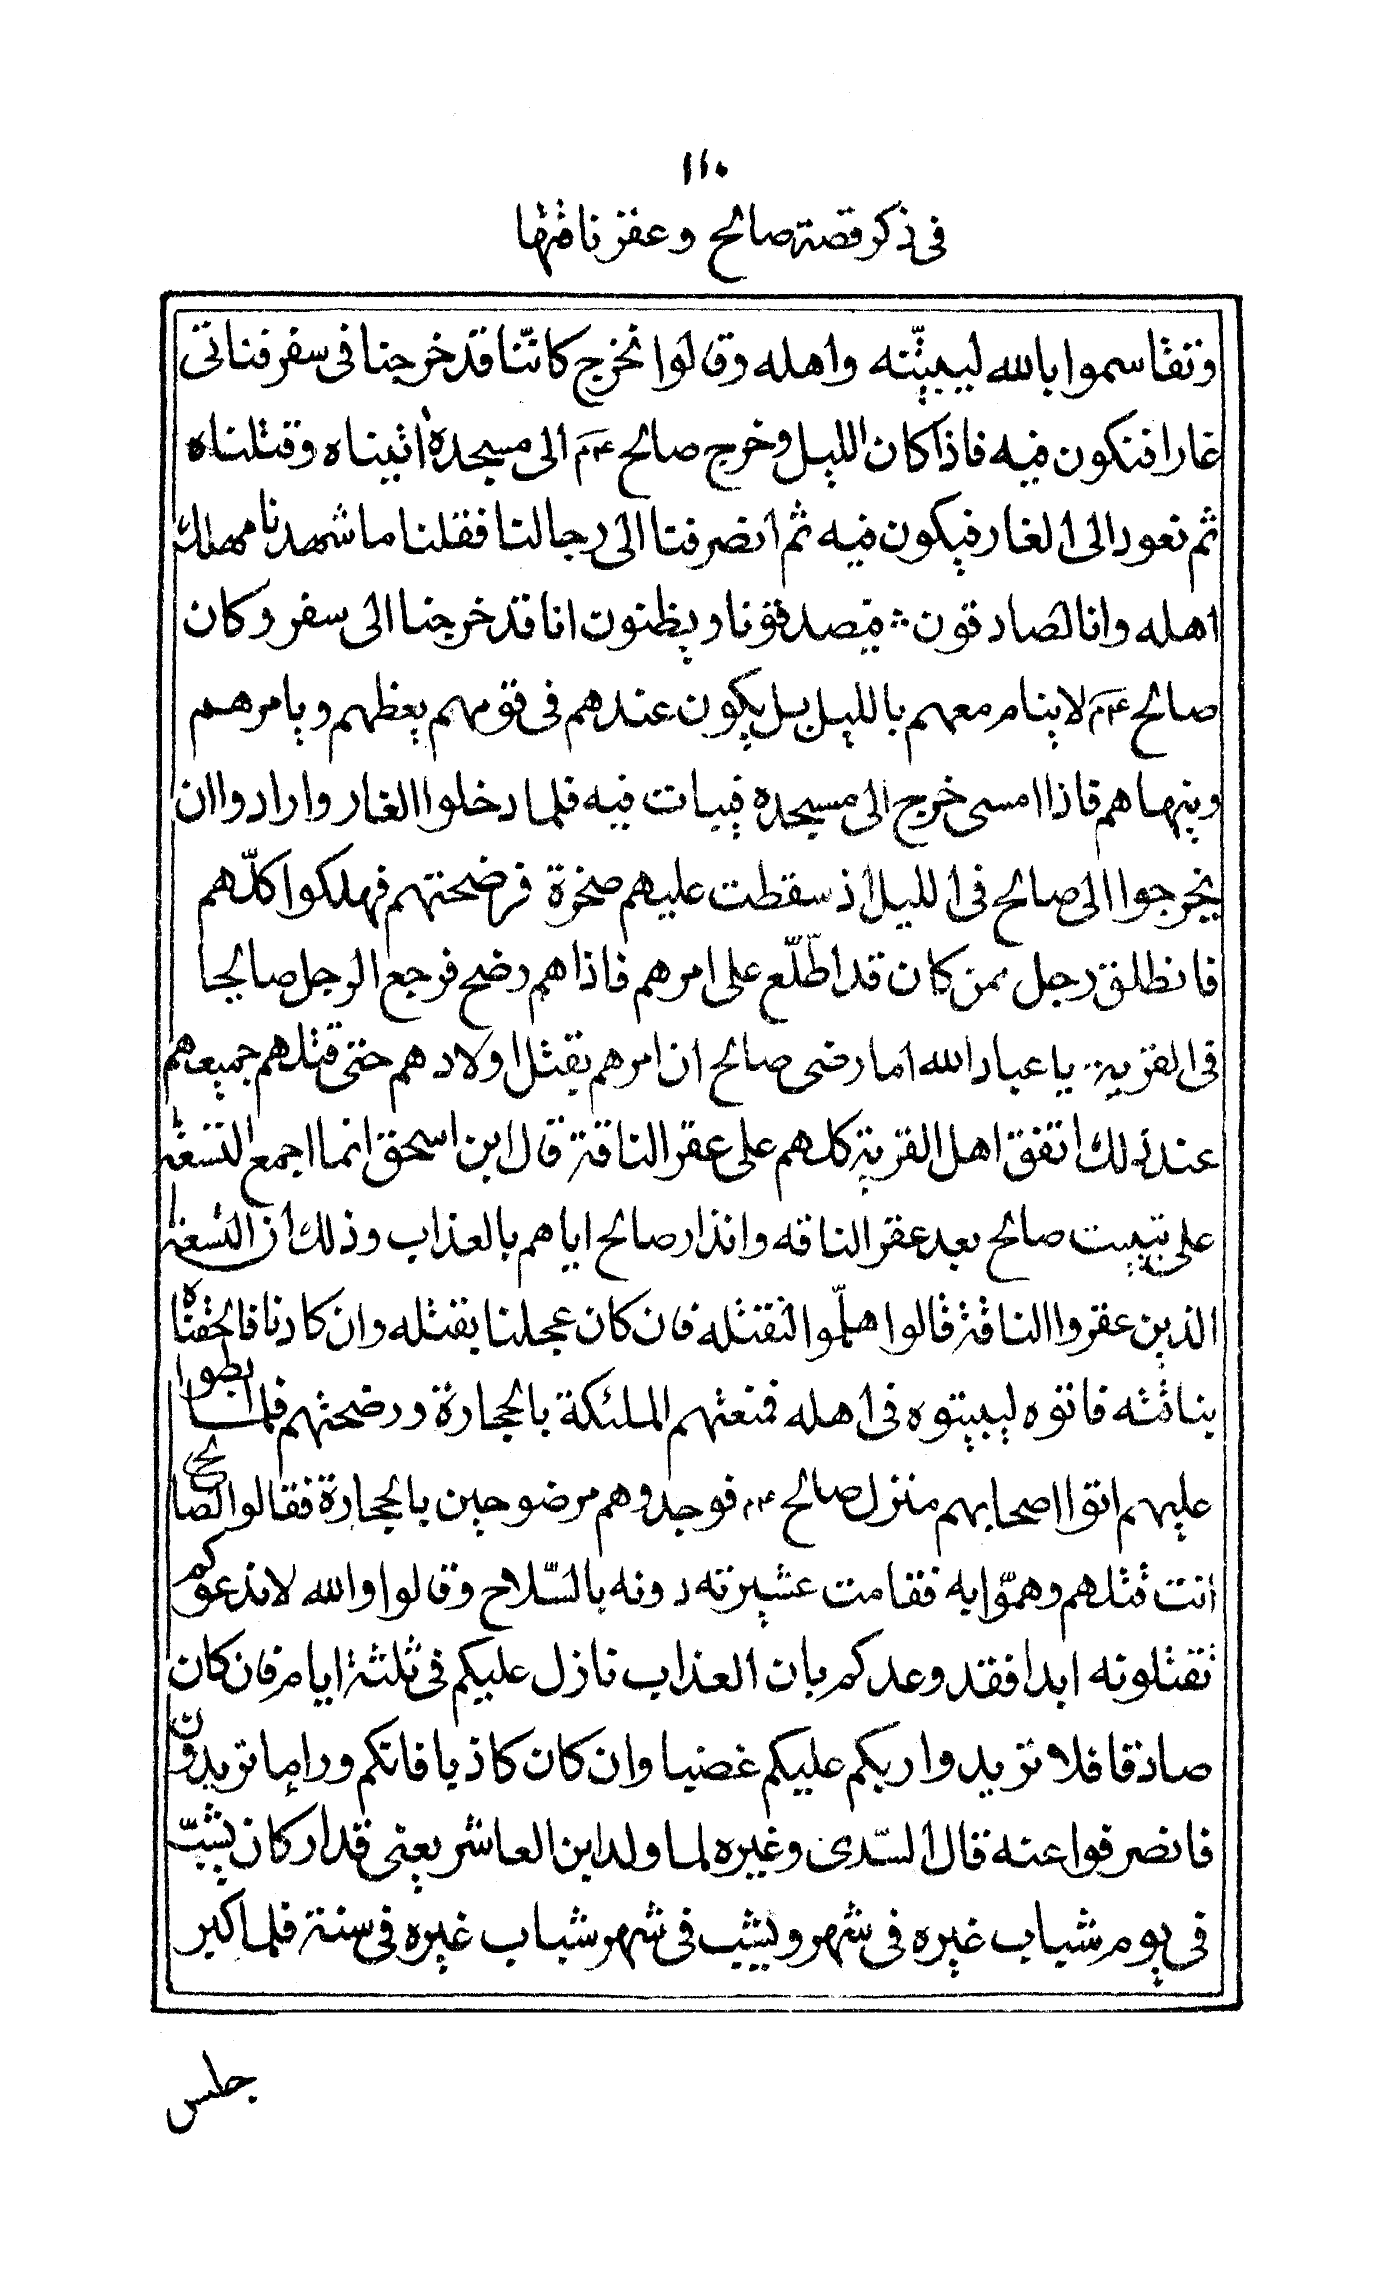 ١١٠
فى ذكر قصة صالح وعقر ناقتها
وتقاسموا بالله ليبيتّنه واهله وقالوا نخرج كانّنا قد خرجنا فى سفر فناتى
غارا فنكون فيه فاذا كان الليل وخرج صالح عم الى مسجده اتيناه وقتلناه
ثم نعود الى الغار فيكون فيه ثم انصرفنا الى رجالنا فقلنا ما شهدنا مهلك
اهله وانا لصادقون ∴ فيصدقونا ويظنون انا قد خرجنا الى سفر وكان
صالح عم لا ينام معهم بالليل بل يكون عندهم فى قومهم يعظهم ويامرهم
وينهاهم فاذا امسى خرج الى مسجده فيبات فيه فلما دخلوا الغار وارادوا ان
يخرجوا الى صالح فى الليل اذ سقطت عليهم صخرة فرضحتهم فهلكوا كلّهم
فانطلق رجل ممن كان قد اطّلع على امرهم فاذا هم رضح فرجع الرجل صالحا
فى القرية ∴ يا عباد الله اما رضى صالح ان امرهم بقتل اولادهم حتى قتلهم جميعهم
عند ذلك اتفق اهل القرية كلهم على عقر الناقة قال ابن اسحق انما اجمع التسعة
على تبييت صالح بعد عقر الناقه وانذار صالح اياهم بالعذاب وذلك ان التسعة
الذين عقروا الناقة قالوا هلمّوا لنقتله فان كان عجلنا بقتله وان كاذبا فالحقناه
بناقته فاتوه ليبيتوه فى اهله فمنعتهم الملئكة بالحجارة ورضحتهم فلما ابطوا
عليهم اتوا اصحابهم منزل صالح عم فوجدوهم مرضوحين بالحجارة فقالوا لصالح
انت قتلهم وهمّوا به فقامت عشيرته دونه بالسّلاح وقالوا والله لا ندعوكم
تقتلونه ابدا فقد وعدكم بان العذاب نازل عليكم فى ثلثة ايام فان كان
صادقا فلا تزيدوا ربكم عليكم غضبا وان كان كاذبا فانكم وراما تريدون
فانصرفوا عنه قال السّدى وغيره لما ولد ابن العاشر يعنى قدار كان يشبّ
فى يوم شباب غيره فى شهر ويشب فى شهر شباب غيره فى سنة فلما اكبر
جلس